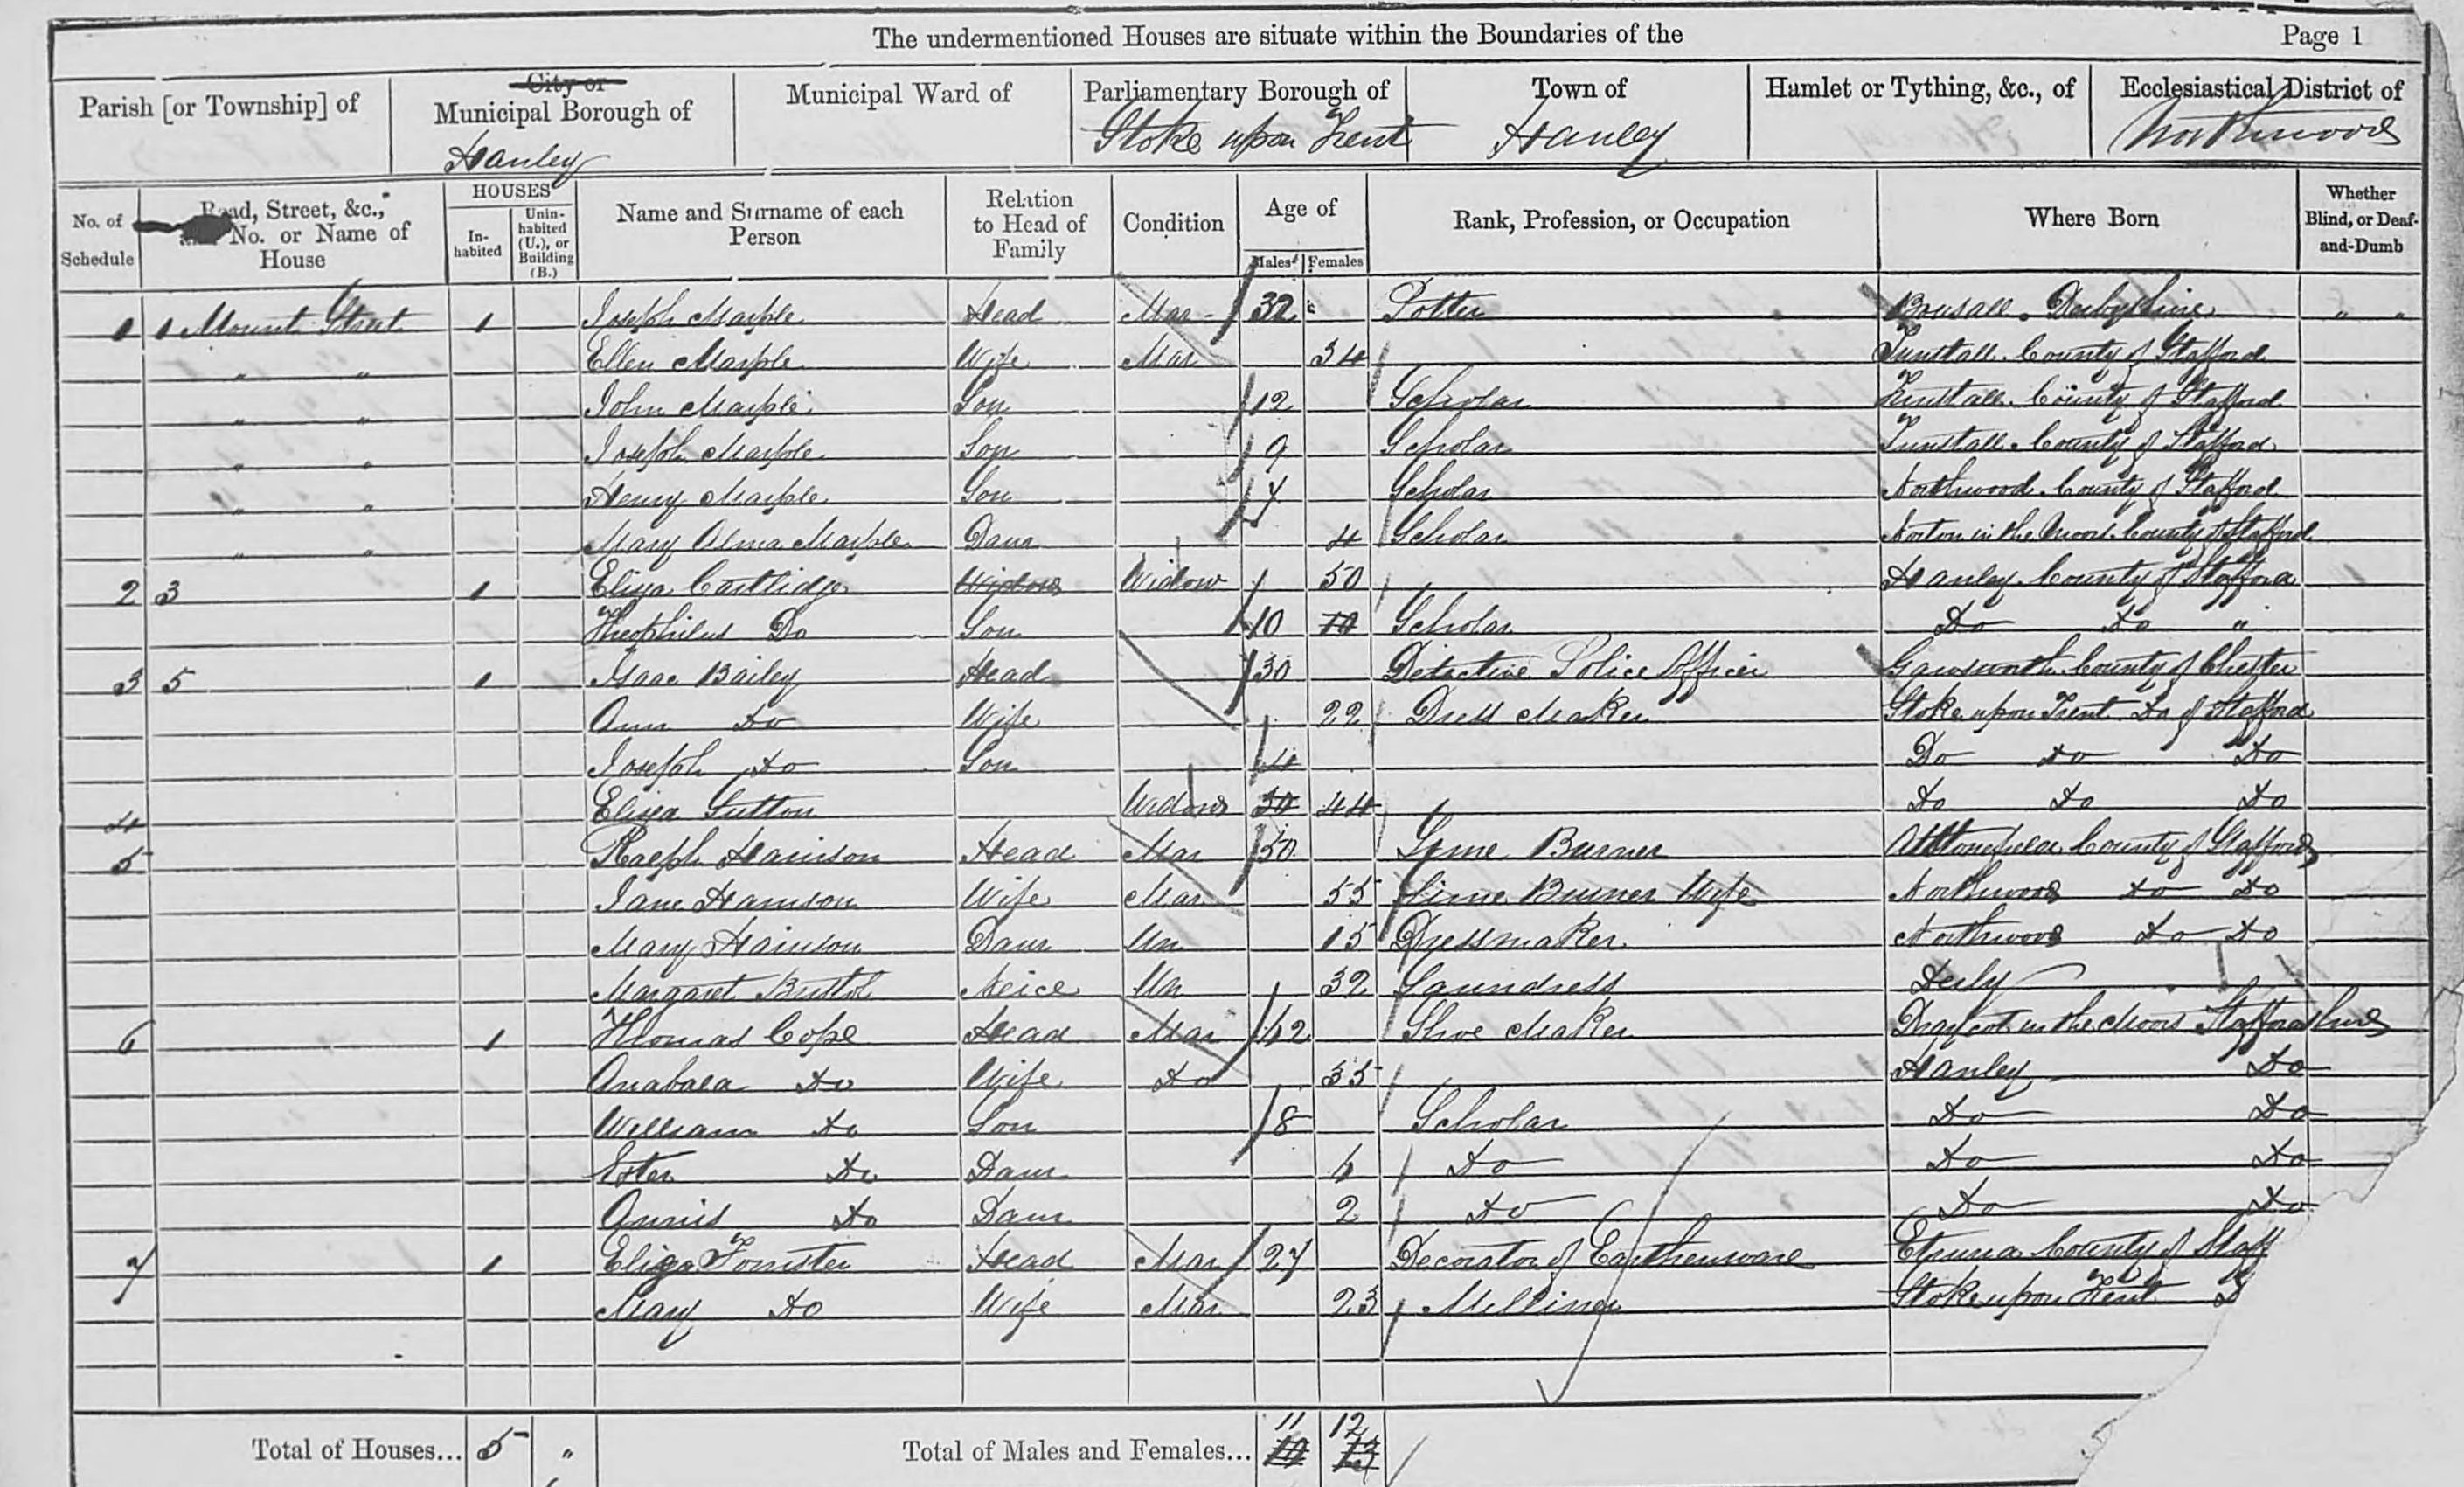 The undermentioned Houses are situate within the Boundaries of the Page 1
Parish [or Township] of City or Municipal Borough of Municipal Ward of Parliamentary Borough of Town of Hamlet or Tything, &c., of Ecclesiastical District of
Hanley Stoke upon Trent Hanley Northwood
No. of Schedule Road, Street, &c., and No. or Name of House HOUSES In-habited Unin-habited (U.), or Building (B.) Name and Surname of each Person Relation to Head of Family Condition Age of Males Females Rank, Profession, or Occupation Where Born Whether Blind, or Deaf-and-Dumb
1 1 Mount Street 1 Joseph Marple Head Mar 32 Potter Bonsall Derbyshire " "
" " Ellen Marple Wife Mar 34 Tunstall County of Stafford
" " John Marple Son 12 Scholar Tunstall County of Stafford
" " Joseph Marple Son 9 Scholar Tunstall County of Stafford
" " Henry Marple Son 7 Scholar Northwood County of Stafford
" " Mary Alma Marple Daur 4 Scholar Norton in the Moors County of Stafford
2 3 1 Eliza Cartlidge Widow Widow 50 Hanley County of Stafford
Theophilus Do Son 10 10 Scholar Do Do "
3 5 1 Isaac Bailey Head 30 Detective Police Officer Gawsworth County of Chester
Ann Do Wife 22 Dress Maker Stoke upon Trent Do of Stafford
Joseph Do Son 4 Do Do Do
4 Eliza Sutton Widow 44 Do Do Do
5 Ralph Harrison Head Mar 50 Lime Burner County of Stafford
Jane Harrison Wife Mar 55 Lime Burner Wife Northwood Do Do
Mary Harrison Daur Un 15 Dressmaker Northwood Do Do
Margaret Neice Un 32 Laundress
6 1 Thomas Cope Head Mar 42 Shoe Maker Draycot in the Moors Staffordshire
Anabala Do Wife Do 35 Hanley Do
William Do Son 8 Scholar Do Do
Ester Do Daur 6 Do Do Do
Annis Do Daur 2 Do Do Do
7 1 Head Mar 27 Decorator of Earthenware Etruria County of Staff
Mary Do Wife Mar 23 Milliner Stoke upon Trent D
Total of Houses... 5 " Total of Males and Females... 11 10 12 13